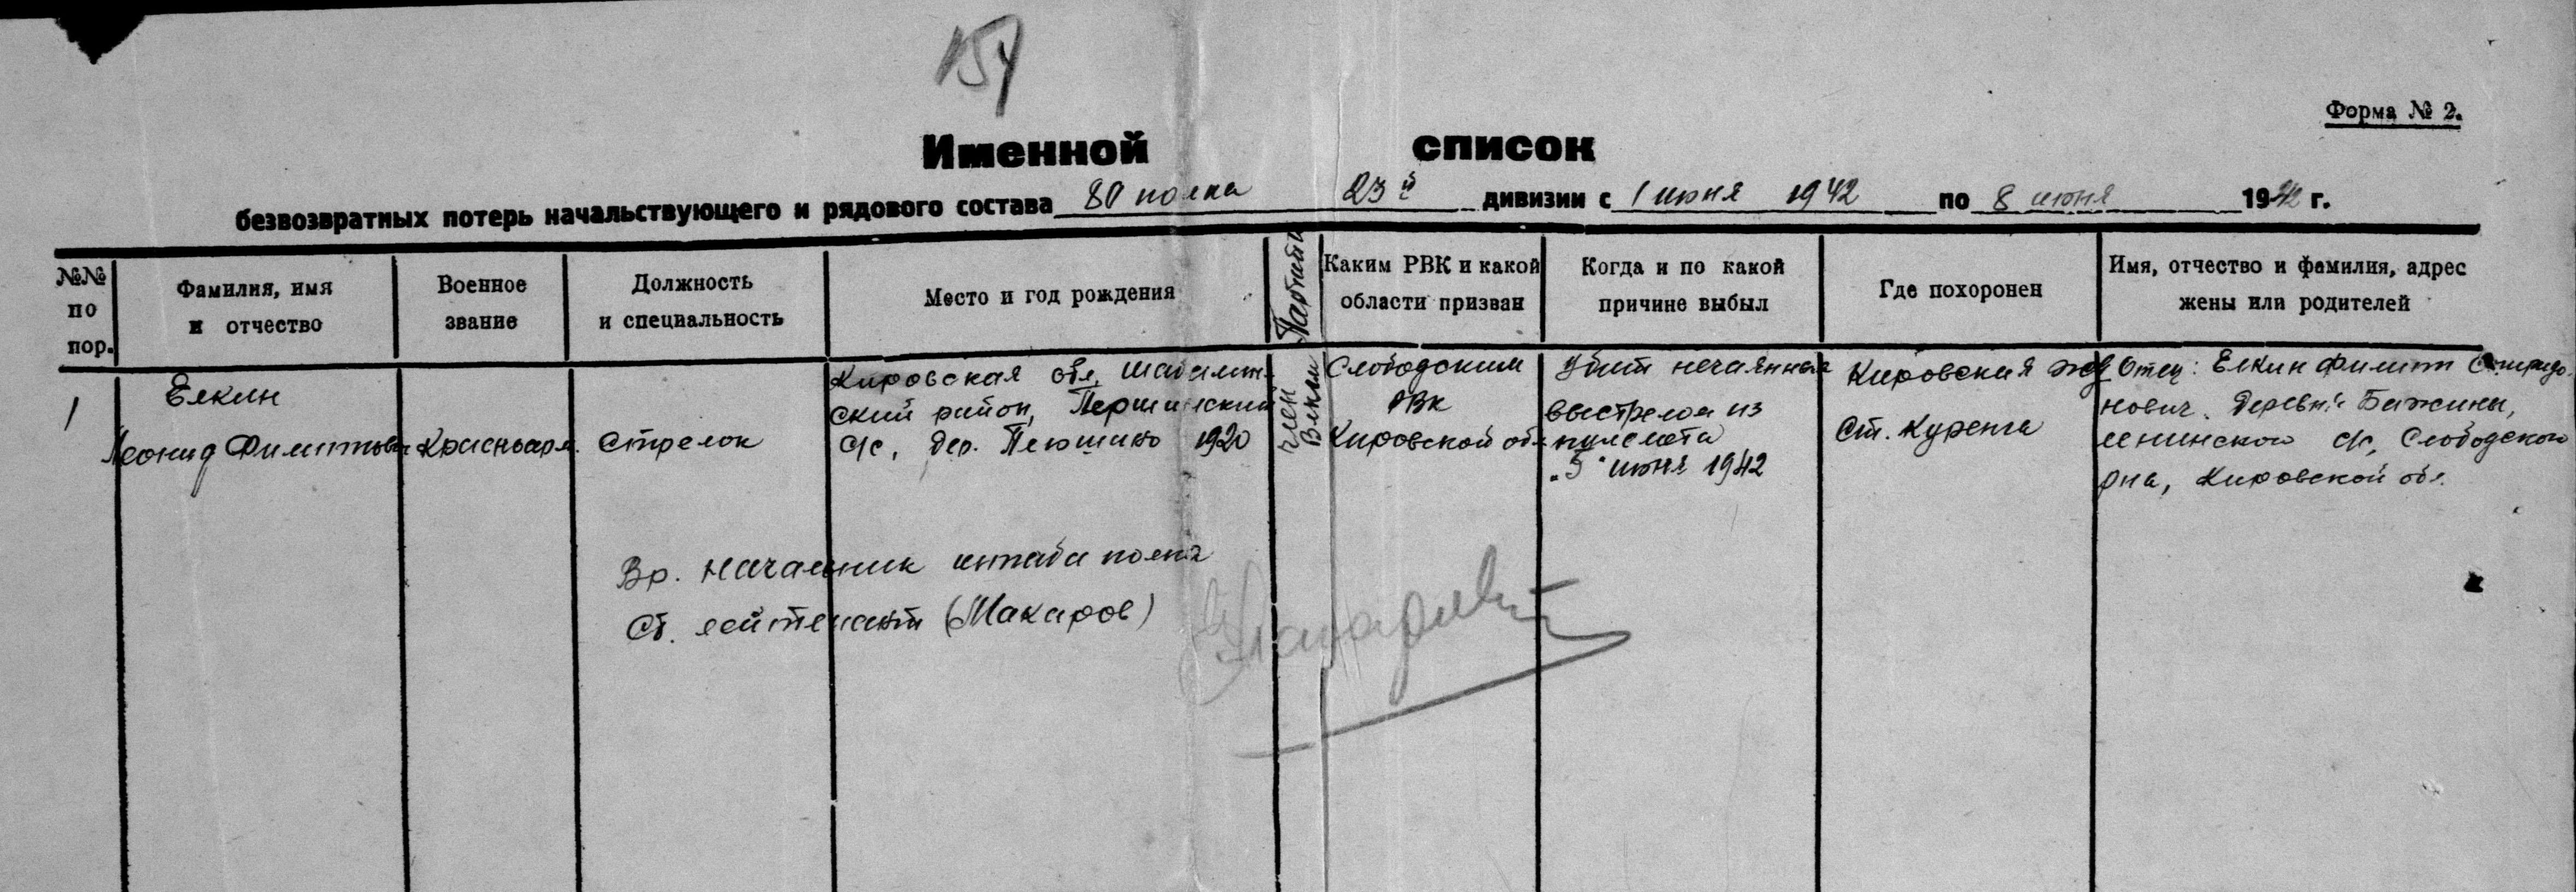 154
Форма № 2.
Именной список
безвозвратных потерь начальствующего и рядового состава 80 полка 23й дивизии с 1 июня 1942 по 8 июня 1942 г.
№№ по пор.
Фамилия, имя и отчество
Военное звание
Должность и специальность
Место и год рождения
Партийн
Каким РВК и какой области призван
Когда и по какой причине выбыл
Где похоронен
Имя, отчество и фамилия, адрес жены или родителей
1
Елкин
Леонид Филиппович
Красноарм.
Стрелок
Кировская обл, Шабалин-
ский район, Першинский
с/с, дер. Плюшино 1920
член
Влксм
Слободским
РВК
Кировской обл
Убит нечаянным
выстрелом из
пулемета
"5" июня 1942
Кировская жд
Ст. Куренга
Отец: Елкин Филипп Спиридо-
нович. Деревня Бажины,
Ленинского с/с, Слободского
рна, Кировской обл.
Вр. Начальник штаба полка
Ст. лейтенант (Макаров)